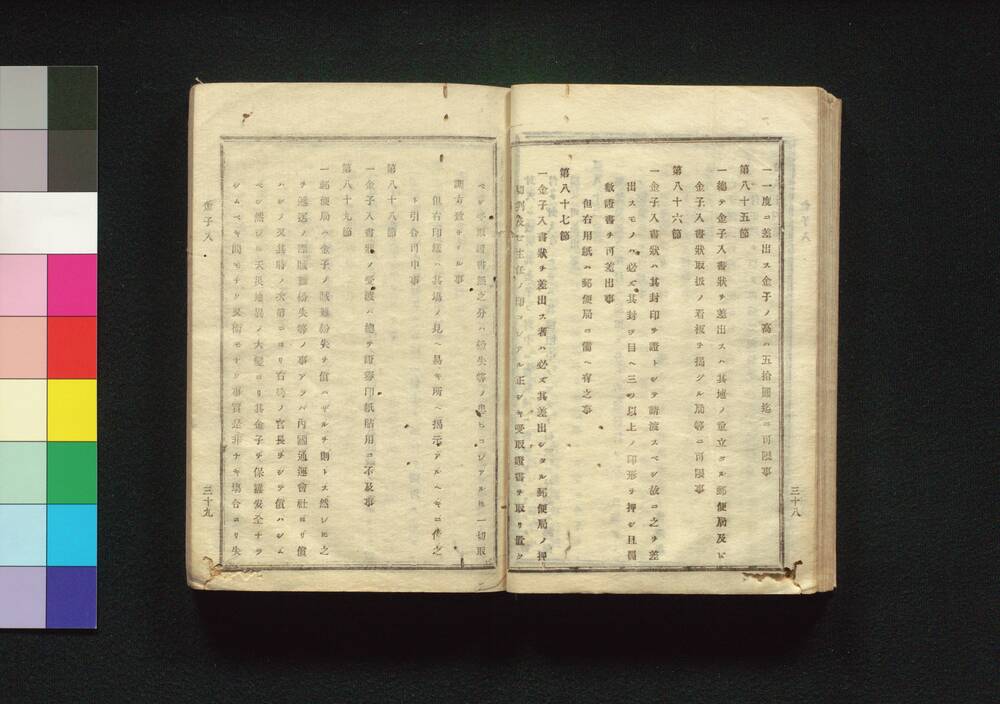 一一度ニ差出ス金子ノ高ハ五拾圓迄ニ可限事
第八十五節
一總テ金子入書狀ヲ差出スハ其地ノ重立タル郵便局及ヒ
金子入書狀取扱ノ看板ヲ揭クル局等ニ可限事
第八十六節
一金子入書狀ハ其封印ヲ證トシテ請渡スベシ故ニ之ヲ差
出スモノハ必ズ其封ヲ目ヘ三ツ以上ノ印形ヲ押シ且調
數證書ヲ可差出事
但右用紙ハ郵便局ニ備ヘ有之事
第八十七節
一金子入書狀ヲ差出ス者ハ必ズ其差出シタル郵便局ノ押
切判及ヒ主任ノ印コレアル正シキ受取證書ヲ取リ置ク
三十八
ベシ受取證書無之分ハ紛失等ノ患ヒコレアルモ一切取
調方致サヾル事
但右印鑑ハ其場ノ見ヘ易キ所ヘ揭示アルヘキニ付之
ト引合可申事
第八十八節
一金子入書狀ノ受渡ハ總テ證券印紙貼用ニ不及事
第八十九節
一郵便局ハ金子ノ賊難紛失ヲ償ハザルヲ則トス然レモ之
ヲ遞送ノ際賊難紛失等ノ事アラバ內國通運會社ヨリ償
ハシメ又其時ノ次第ニヨリ右局ノ官長ヲシテ償ハシム
ベシ然レモ天災地異ノ大變ヨリ其金子ヲ保護安全ナラ
シムベキ間モナク又術モナク事實是非ナキ場合ヨリ失
金子入
三十九